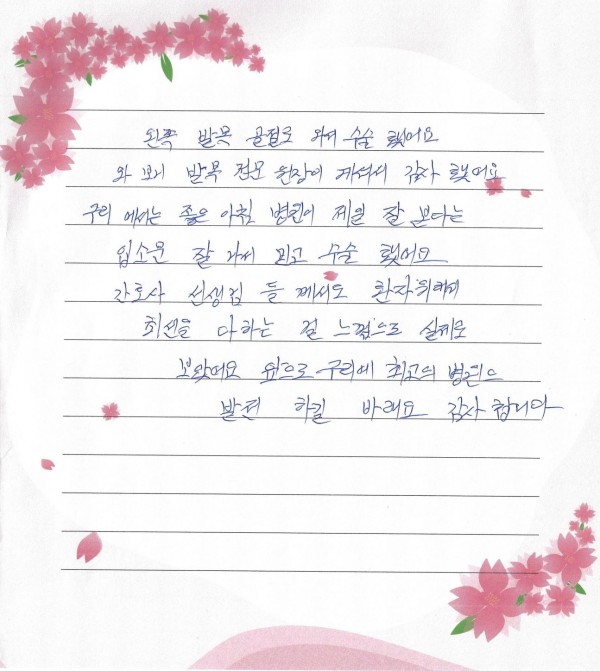 왼쪽 발목 골절로 와서 수술 했어요
와 보니 발목 전문 원장이 계셔서 감사 했어요
구리 에서는 좋은 아침 병원이 제일 잘 본다는
입소문 잘 가서 믿고 수술 했어요
간호사 선생님 들 께서도 환자위해서
최선을 다하는 걸 느낌으로 실제로
보았어요 앞으로 구리에 최고의 병원으
발전 하길 바래요 감사 합니다